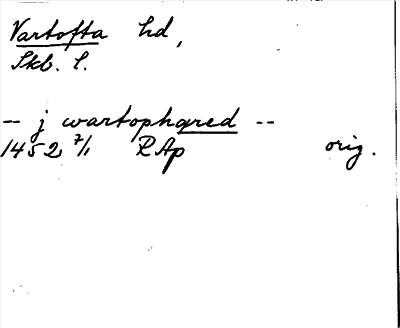 Vartofta hd,
Skb. l.
-- j wartophæred --
1452 7/1 RAp orig.